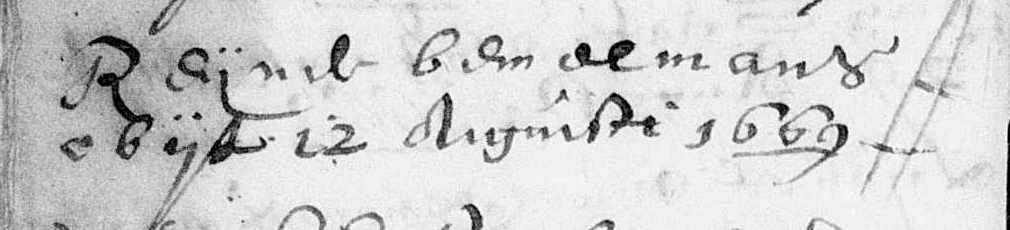 Reijnde bemoelmans
obijt 12 Augusti 1669